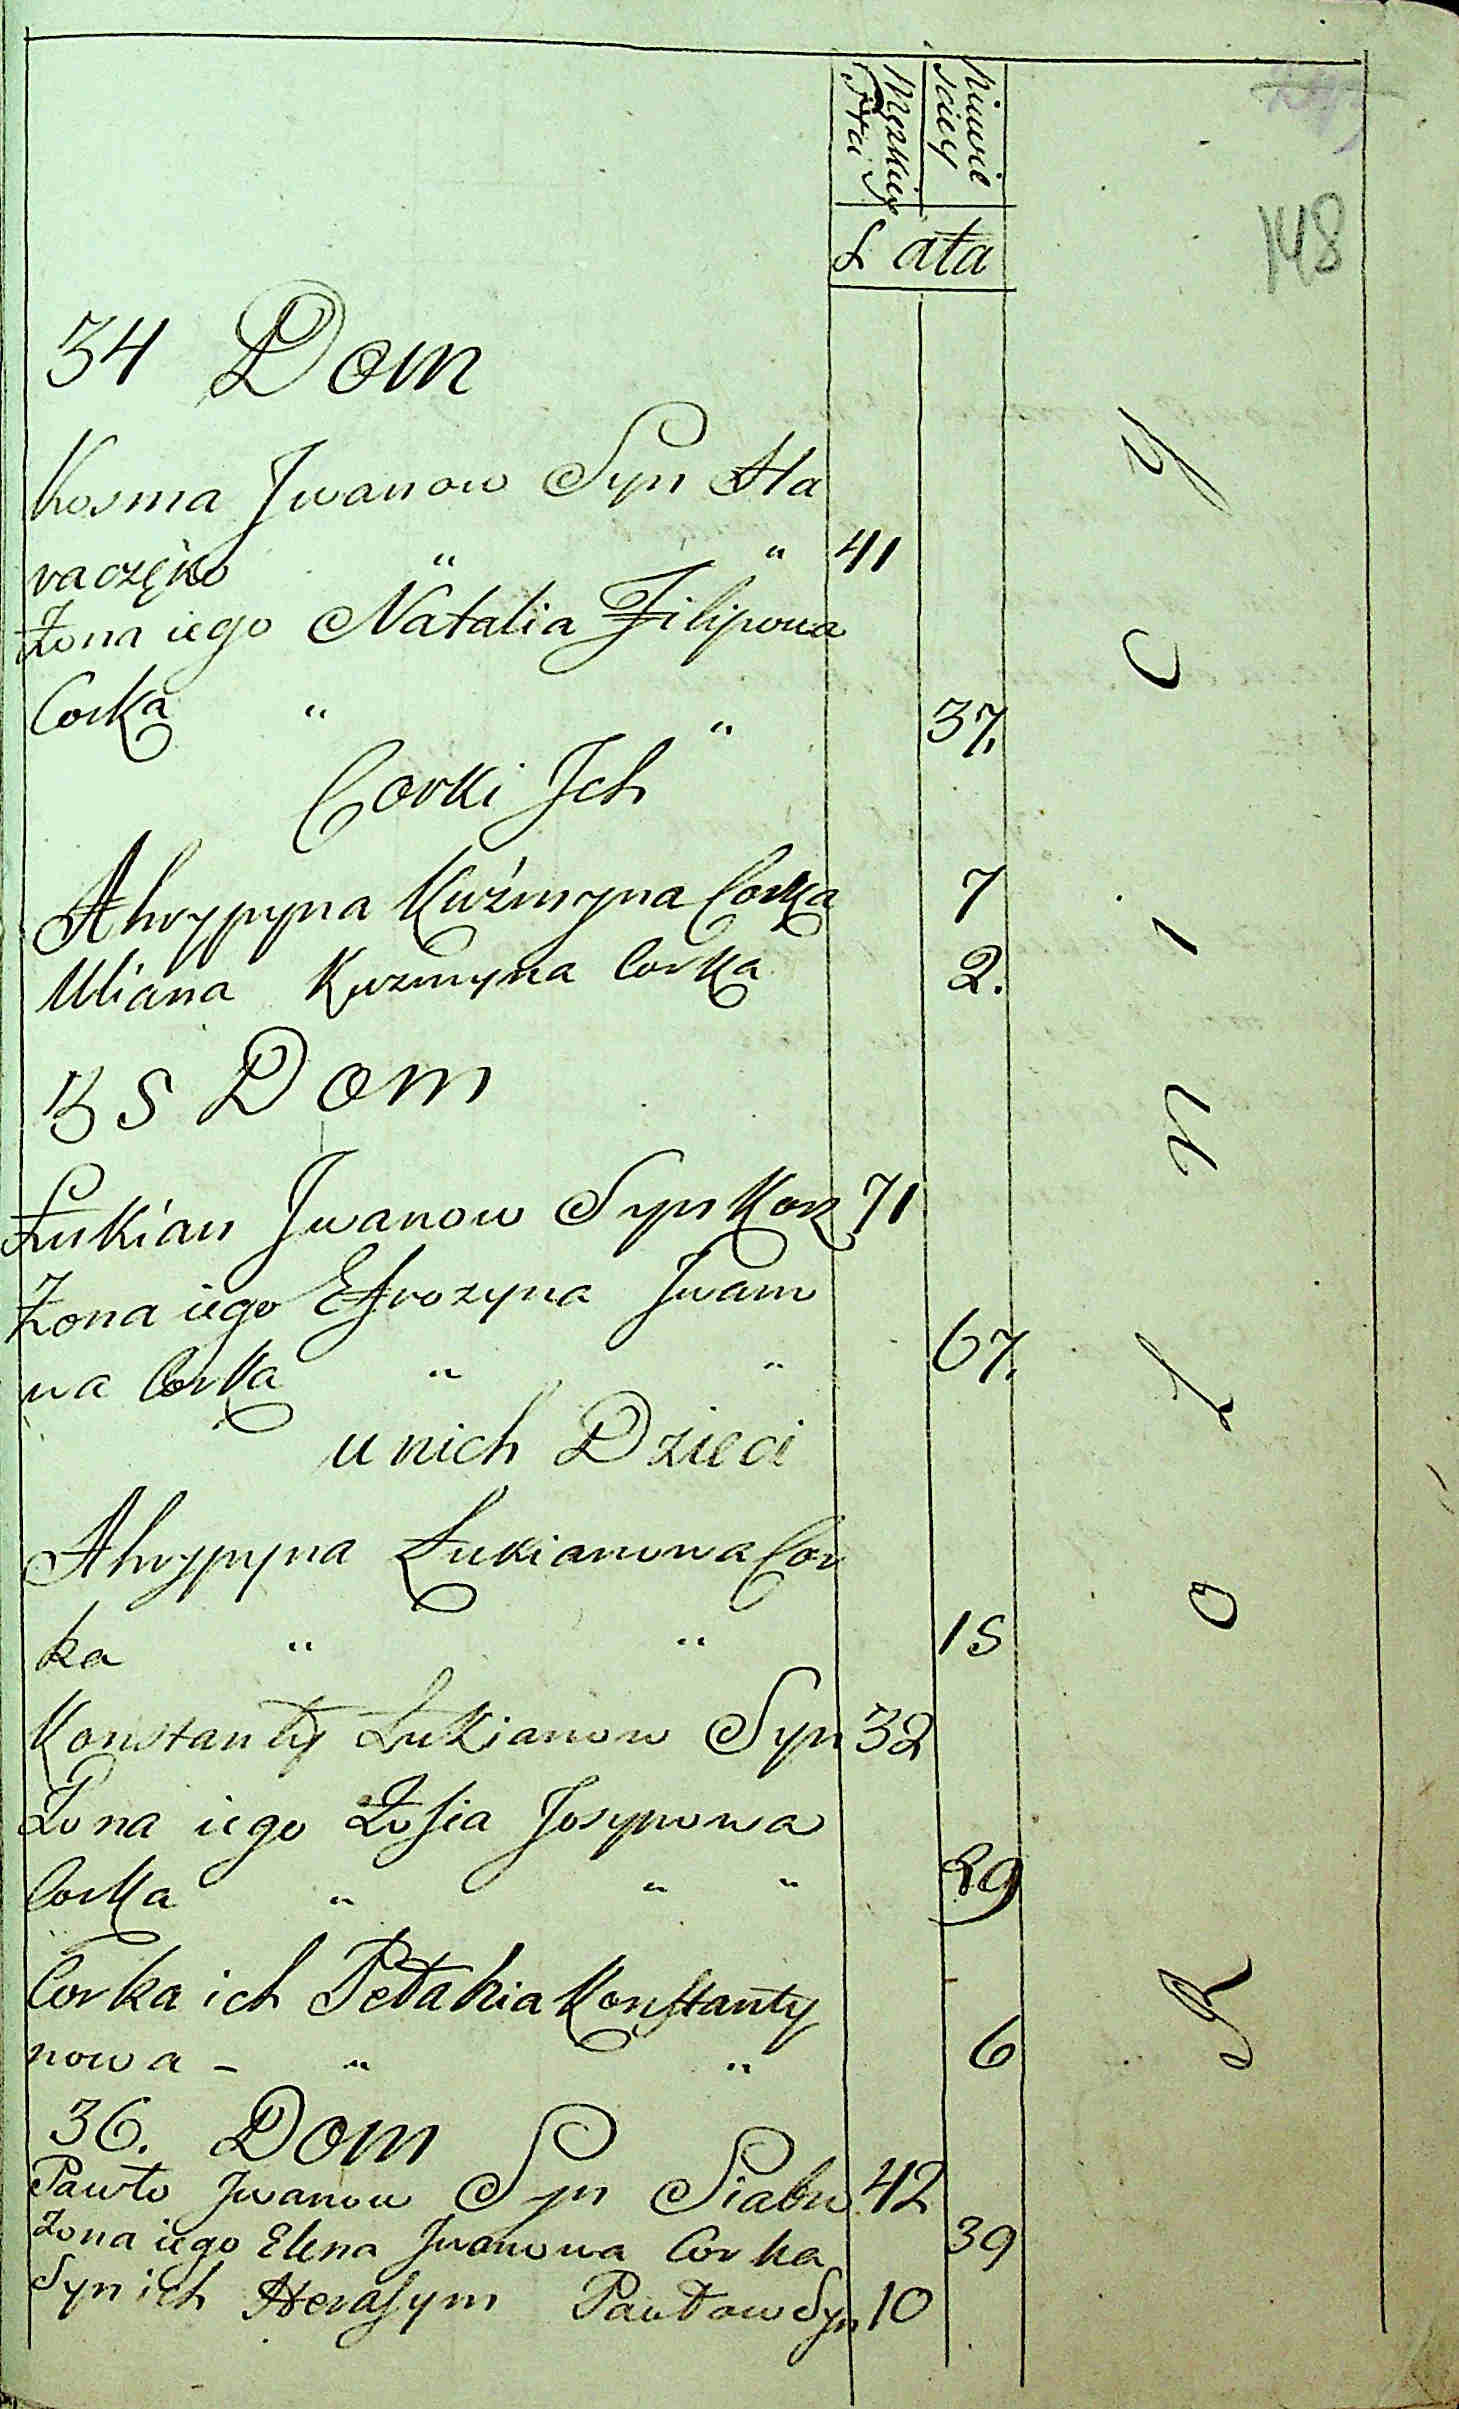 Męzkiey Płci
Niewie sciey
Lata
148
34 Dom
Kosma Jwanow Syn Ha
raczęko " " 41
Żona iego Natalia Filipowa
Corka " " 37.
Corki Jch
Ahrypyna Kuźmyna Corka 7
Uliana Kuzmyna Corka 2.
35 Dom
Łukian Jwanow Syn Korz 71
Żona iego Efrozyna Jwano
wa Corka " " 67.
u nich Dzieci
Ahrypyna Łukianowa Cor
ka " " 15
Konstanty Łukianow Syn 32
Żona iego Zofia Josypowa
Corka " " " 29
Corka ich Pełahia Konstanty
nowa - " " 6
36. Dom
Pawło Jwanow Syn Siabr 42
Żona iego Elena Jwanowa Corka 39
Syn ich Herasym Pawłow Syn 10
Rolnicy